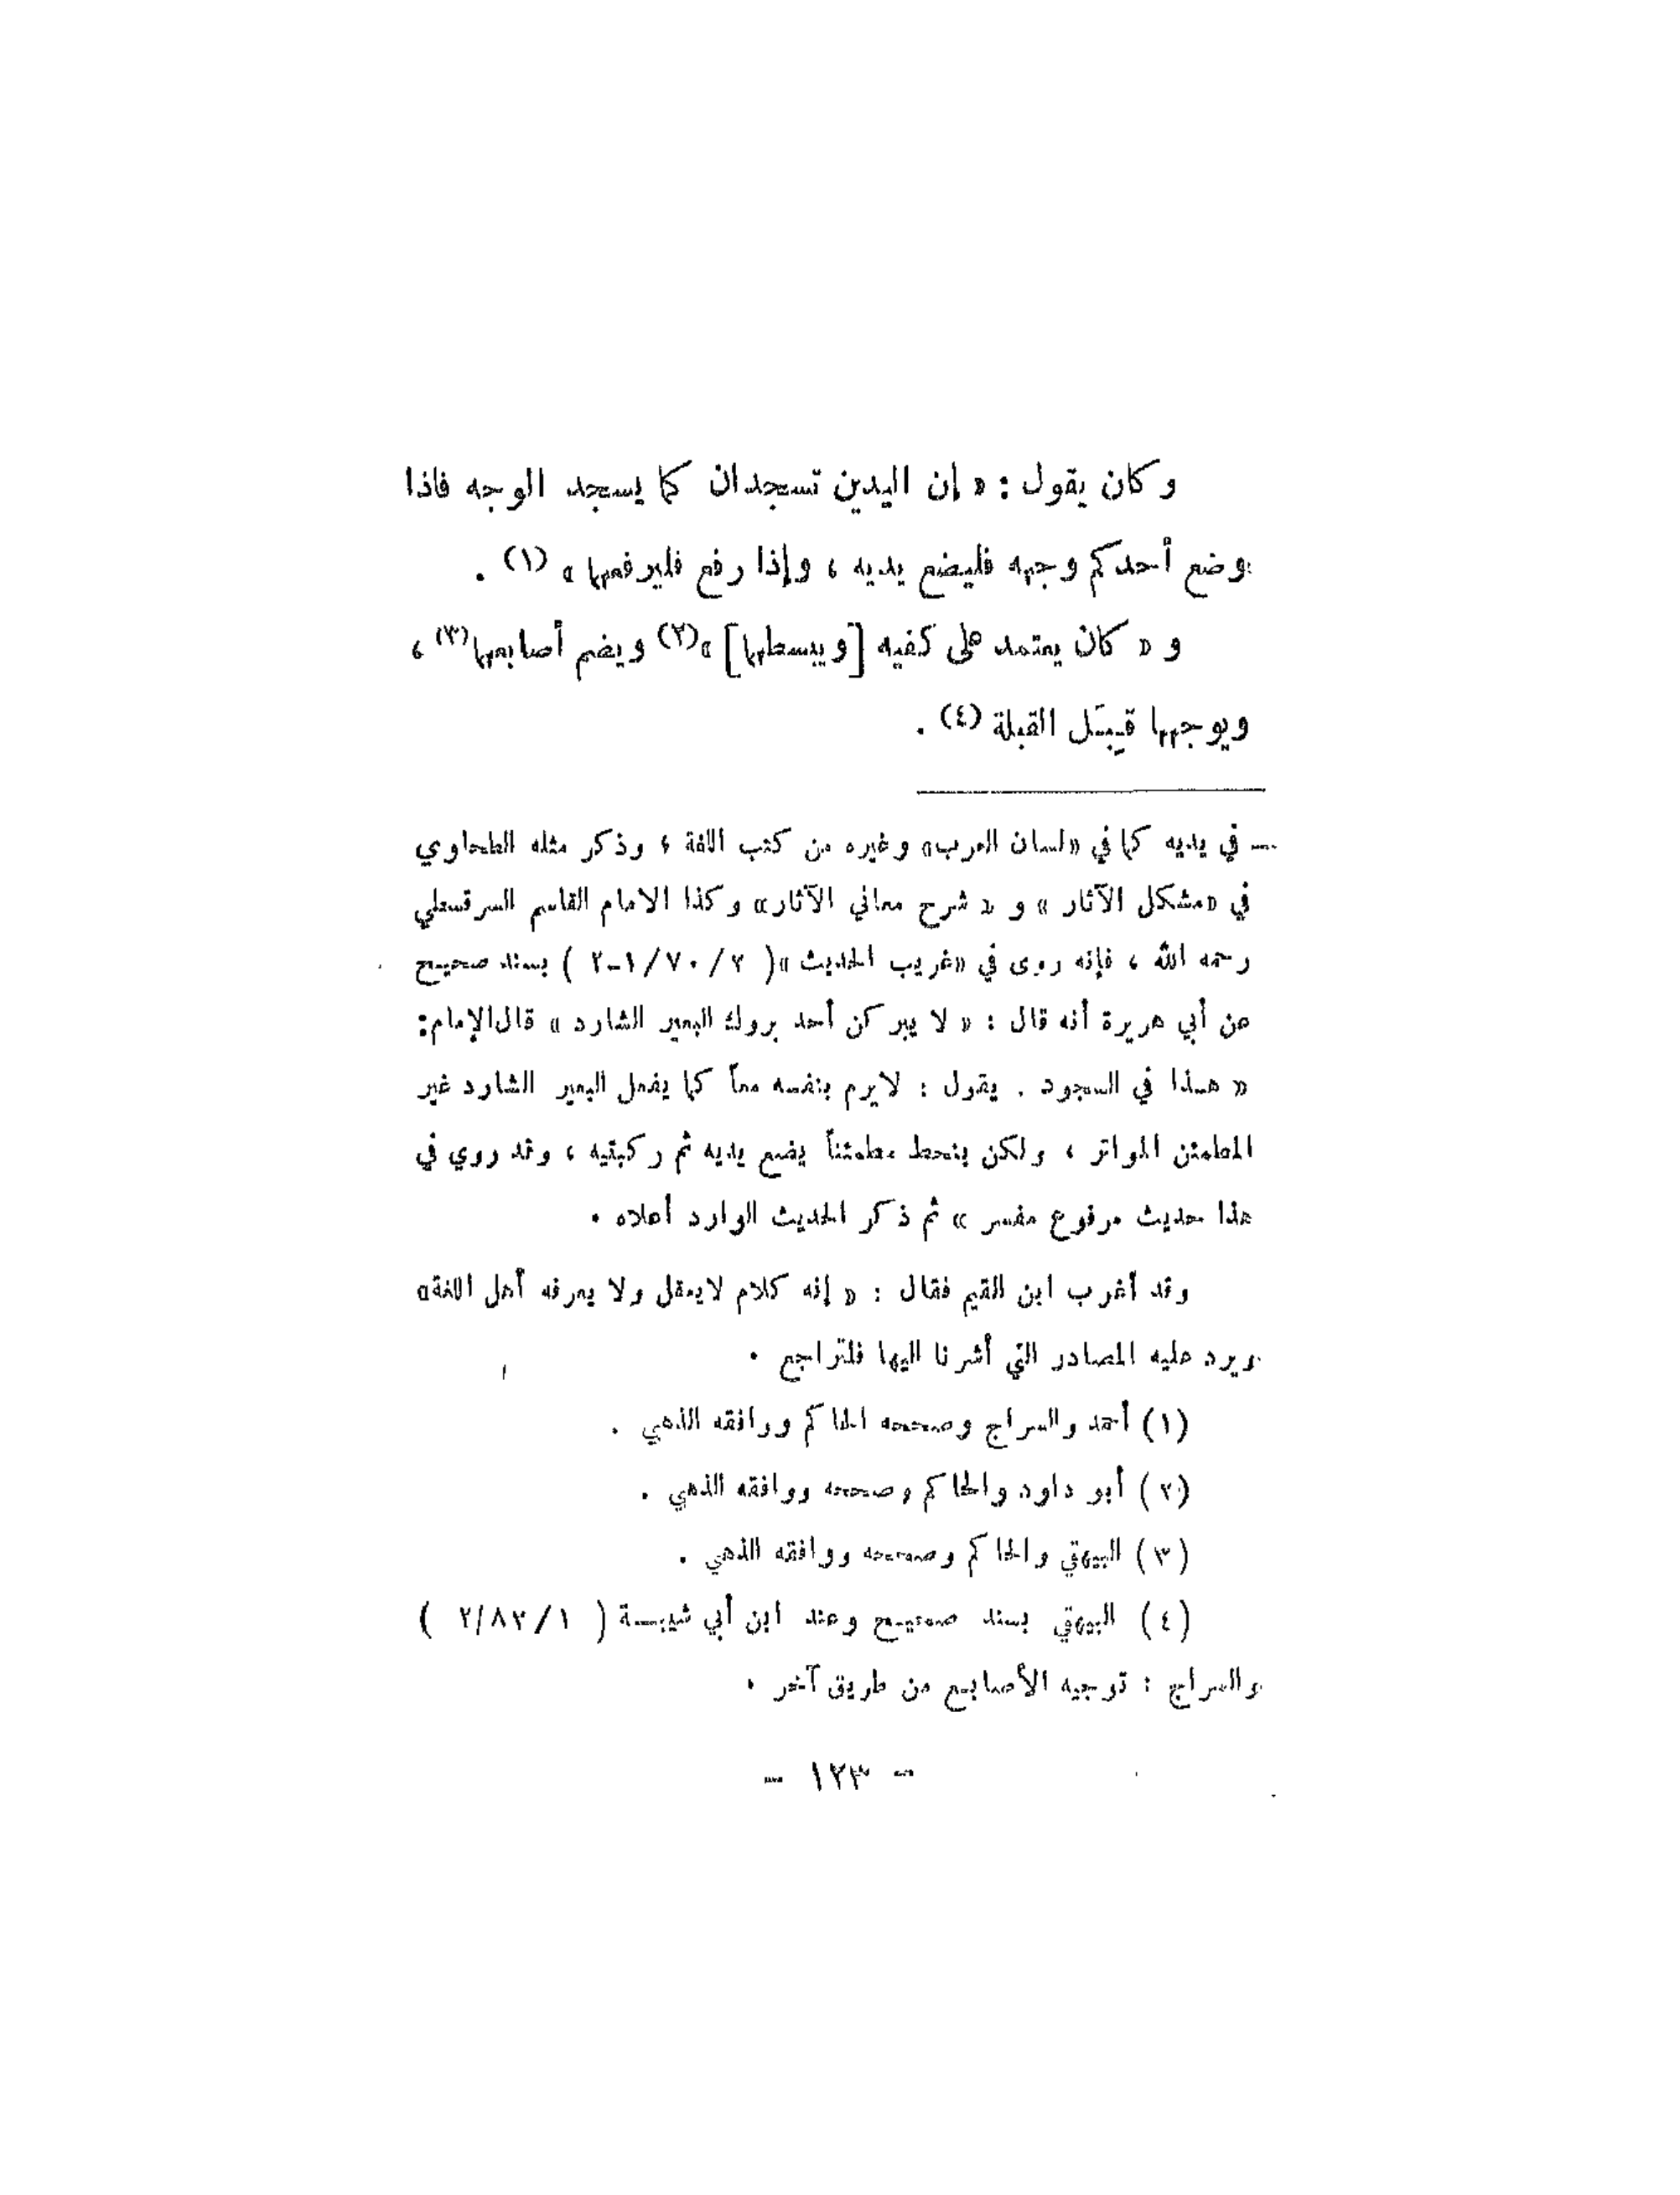 وكان يقول : « إن اليدين تسجدان كما يسجد الوجه فاذا
وضع أحدكم وجهه فليضع يديه ، وإذا رفع فليرفعهما » (١) .
و « كان يعتمد على كفيه [ويبسطهما] »(٢) ويضم أصابعهما(٣) ،
ويوجهها قِبَل القبلة (٤) .
ـ في يديه كما في «لسان العرب» وغيره من كتب اللغة ؛ وذكر مثله الطحاوي
في «مشكل الآثار » و « شرح معاني الآثار» وكذا الامام القاسم السرقسطي
رحمه الله ، فإنه روى في «غريب الحديث »( ٢/ ٧٠/ ١-٢ ) بسند صحيح
عن أبي هريرة أنه قال : « لا يبركن أحد بروك البعير الشارد » قال الإمام:
« هـذا في السجود . يقول : لايرم بنفسه معاً كما يفعل البعير الشارد غير
المطمئن المواتر ، ولكن ينحط مطمئناً يضع يديه ثم ركبتيه ، وقد روي في
هذا حديث مرفوع مفسر » ثم ذكر الحديث الوارد أعلاه .
وقد أغرب ابن القيم فقال : « إنه كلام لايعقل ولا يعرفه أهل اللغة»
ويرد عليه المصادر التي أشرنا اليها فلتراجع .
(١) أحمد والسراج وصححه الحاكم ووافقه الذهبي .
(٢) أبو داود والحاكم وصححه ووافقه الذهبي .
(٣) البيهقي والحاكم وصححه ووافقه الذهبي .
(٤) البيهقي بسند صحيح وعند ابن أبي شيبـة ( ١/ ٨٢/ ٢ )
والسراج : توجيه الأصابع من طريق آخر .
- ١٢٣ -